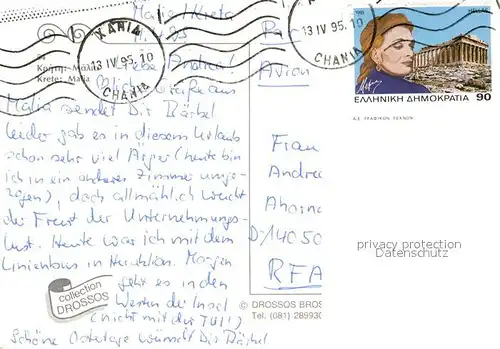 Malia / Kreta
Κρήτη: Μάλια
Krete: Malia
ΧΑΝΙΑ
13 IV 95.10
CHANIA
Liebe Andrea!
Grüße aus
Malia sendet Dir Bärbel
leider gab es in diesem Urlaub
schon sehr viel Ärger (heute bin
ich in ein anderes Zimmer umge-
zogen), doch allmählich weicht
der Frust der Unternehmungs-
lust. Heute war ich mit dem
Linienbus in Heraklion. Morgen
geht es in den
Westen der Insel
(nicht mit der TUI!)
Schöne Ostertage wünscht Dir Bärbel
collection
DROSSOS
13 IV 95.10
CHANIA
Par
Avion
1995
HELLAS
ΕΛΛΗΝΙΚΗ ΔΗΜΟΚΡΑΤΙΑ 90
Α.Ε. ΓΡΑΦΙΚΩΝ ΤΕΧΝΩΝ
Frau
Andrea
Ahorn
D-14050
RFA
privacy protection
Datenschutz
© DROSSOS BROS
Tel. (081) 289930